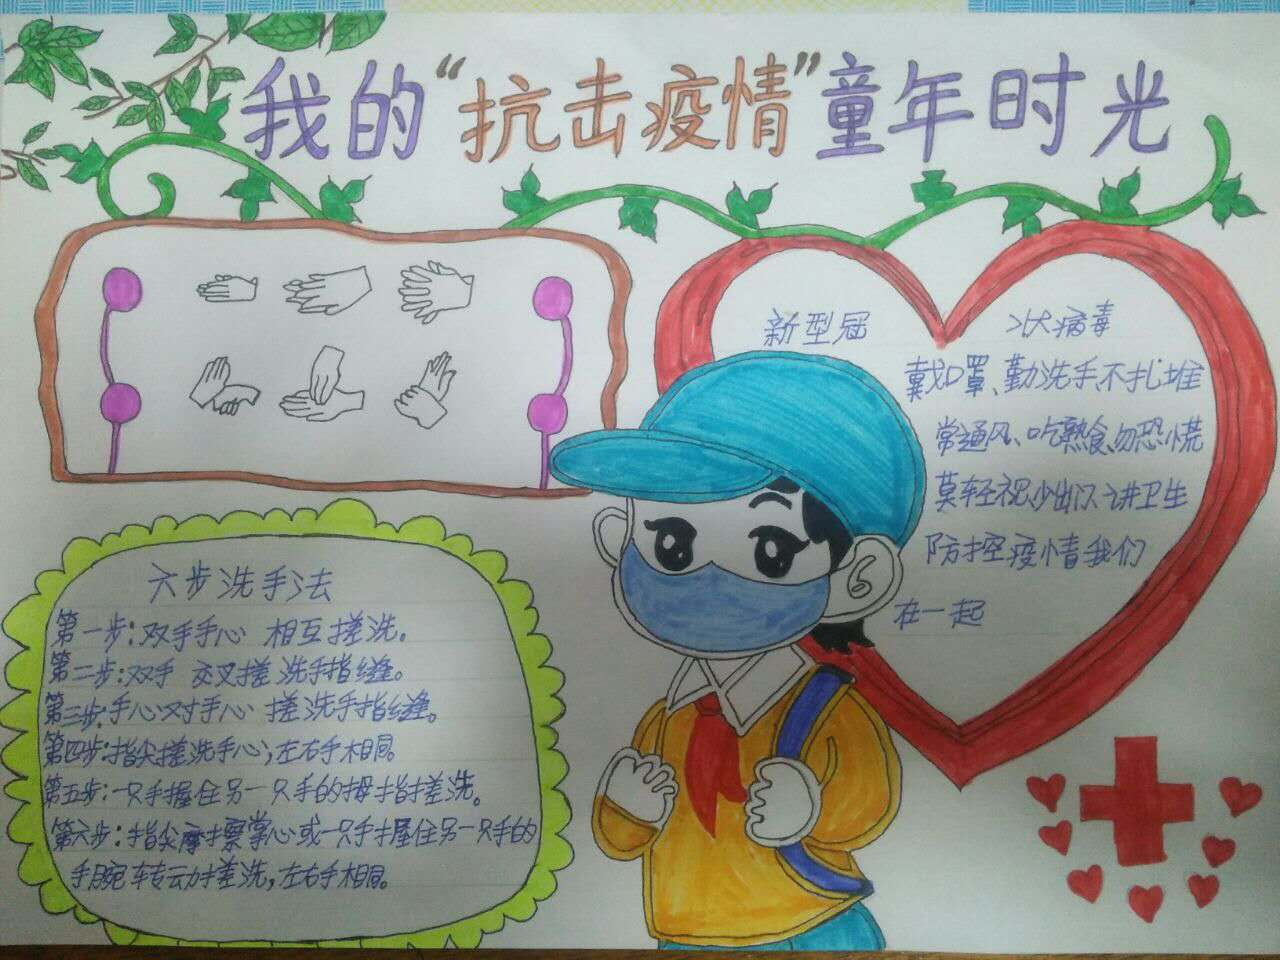 我的“抗击疫情”童年时光
新型冠 状病毒
戴口罩、勤洗手不扎堆
常通风、吃熟食、勿恐慌
莫轻视少出门讲卫生
防控疫情我们
在一起
六步洗手法
第一步：双手手心 相互搓洗。
第二步：双手 交叉搓洗手指缝。
第三步：手心对手心 搓洗手指缝。
第四步：指尖搓洗手心，左右手相同。
第五步：一只手握住另一只手的拇指搓洗。
第六步：指尖摩擦掌心或一只手握住另一只手的
手腕转动搓洗，左右手相同。